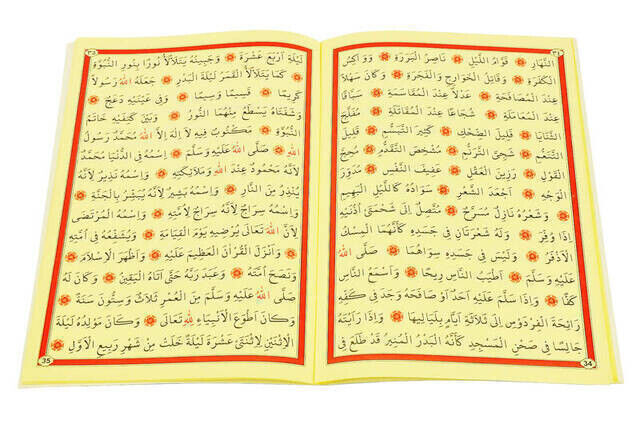 ٣٤
النَّهَارِ قَوَّامُ اللَّيْلِ نَاصِرُ الْبَرَرَةِ وَوَاكِسُ
الْكَفَرَةِ وَقَاتِلُ الْخَوَارِجِ وَالْفَجَرَةِ وَكَانَ سَهْلًا
عِنْدَ الْمُصَافَحَةِ عَدْلًا عِنْدَ الْمُقَاسَمَةِ سَبَّاقًا
عِنْدَ الْمُعَامَلَةِ شُجَاعًا عِنْدَ الْمُقَاتَلَةِ مُفَلَّجَ
الثَّنَايَا قَلِيلَ الضِّحْكِ كَثِيرَ التَّبَسُّمِ قَلِيلَ
التَّنَعُّمِ شَجِيَّ التَّرَنُّمِ مُشَخَّصَ التَّقَدُّمِ صَحِيحَ
الْقَوْلِ رَزِينَ الْعَقْلِ عَفِيفَ النَّفْسِ مُدَوَّرَ
الْوَجْهِ اَجْعَدَ الشَّعْرِ سَوَادُهُ كَاللَّيْلِ الْبَهِيمِ
وَشَعْرُهُ نَازِلٌ مُسَرَّحٌ مُتَّصِلٌ اِلَى شَحْمَتَيْ اُذُنَيْهِ
اِذَا وُفِّرَ وَلَهُ شَعْرَتَانِ فِي جَسَدِهِ كَاَنَّهُمَا الْمِسْكُ
الْاَذْفَرُ وَلَيْسَ فِي جَسَدِهِ سِوَاهُمَا صَلَّى اللهُ
عَلَيْهِ وَسَلَّمَ اَطْيَبُ النَّاسِ رِيحًا وَاَسْمَحُ النَّاسِ
كَفًّا وَاِذَا سَلَّمَ عَلَيْهِ اَحَدٌ اَوْ صَافَحَهُ وَجَدَ فِي كَفِّهِ
رَائِحَةَ الْفِرْدَوْسِ اِلَى ثَلَاثَةِ اَيَّامٍ بِلَيَالِيهَا وَاِذَا رَاَيْتَهُ
جَالِسًا فِي صَحْنِ الْمَسْجِدِ كَاَنَّهُ الْبَدْرُ الْمُنِيرُ قَدْ طَلَعَ فِي
34
٣٥
لَيْلَةِ اَرْبَعَ عَشْرَةَ وَجَبِينُهُ يَتَلَأْلَأُ نُورًا بِنُورِ النُّبُوَّةِ
كَمَا يَتَلَأْلَأُ الْقَمَرُ لَيْلَةَ الْبَدْرِ جَعَلَهُ اللهُ رَسُولًا
كَرِيمًا قَسِيمًا وَسِيمًا وَفِي عَيْنَيْهِ دَعَجٌ
وَشَفَتَاهُ يَسْطَعُ مِنْهُمَا النُّورُ وَبَيْنَ كَتِفَيْهِ خَاتَمُ
النُّبُوَّةِ مَكْتُوبٌ فِيهِ لَا اِلَهَ اِلَّا اللهُ مُحَمَّدٌ رَسُولُ
اللهِ صَلَّى اللهُ عَلَيْهِ وَسَلَّمَ اِسْمُهُ فِي الدُّنْيَا مُحَمَّدٌ
لِاَنَّهُ مَحْمُودٌ عِنْدَ اللهِ وَمَلَائِكَتِهِ وَاِسْمُهُ نَذِيرٌ لِاَنَّهُ
يُنْذِرُ مِنَ النَّارِ وَاِسْمُهُ بَشِيرٌ لِاَنَّهُ يُبَشِّرُ بِالْجَنَّةِ
وَاِسْمُهُ سِرَاجٌ لِاَنَّهُ سِرَاجٌ لِاُمَّتِهِ وَاِسْمُهُ الْمُرْتَضَى
لِاَنَّ اللهَ تَعَالَى يُرْضِيهِ يَوْمَ الْقِيَامَةِ وَيُشَفِّعُهُ فِي اُمَّتِهِ
وَاَنْزَلَ الْقُرْاٰنَ الْعَظِيمَ عَلَيْهِ وَاَظْهَرَ الْاِسْلَامَ
وَنَصَحَ اُمَّتَهُ وَعَبَدَ رَبَّهُ حَتَّى اَتَاهُ الْيَقِينُ وَكَانَ لَهُ
صَلَّى اللهُ عَلَيْهِ وَسَلَّمَ مِنَ الْعُمْرِ ثَلَاثٌ وَسِتُّونَ سَنَةً
وَكَانَ اَطْوَعَ الْاَنْبِيَاءِ لِلّٰهِ تَعَالَى وَكَانَ مَوْلِدُهُ لَيْلَةَ
الْاِثْنَيْنِ لِاثْنَتَيْ عَشْرَةَ لَيْلَةً خَلَتْ مِنْ شَهْرِ رَبِيعِ الْاَوَّلِ
35